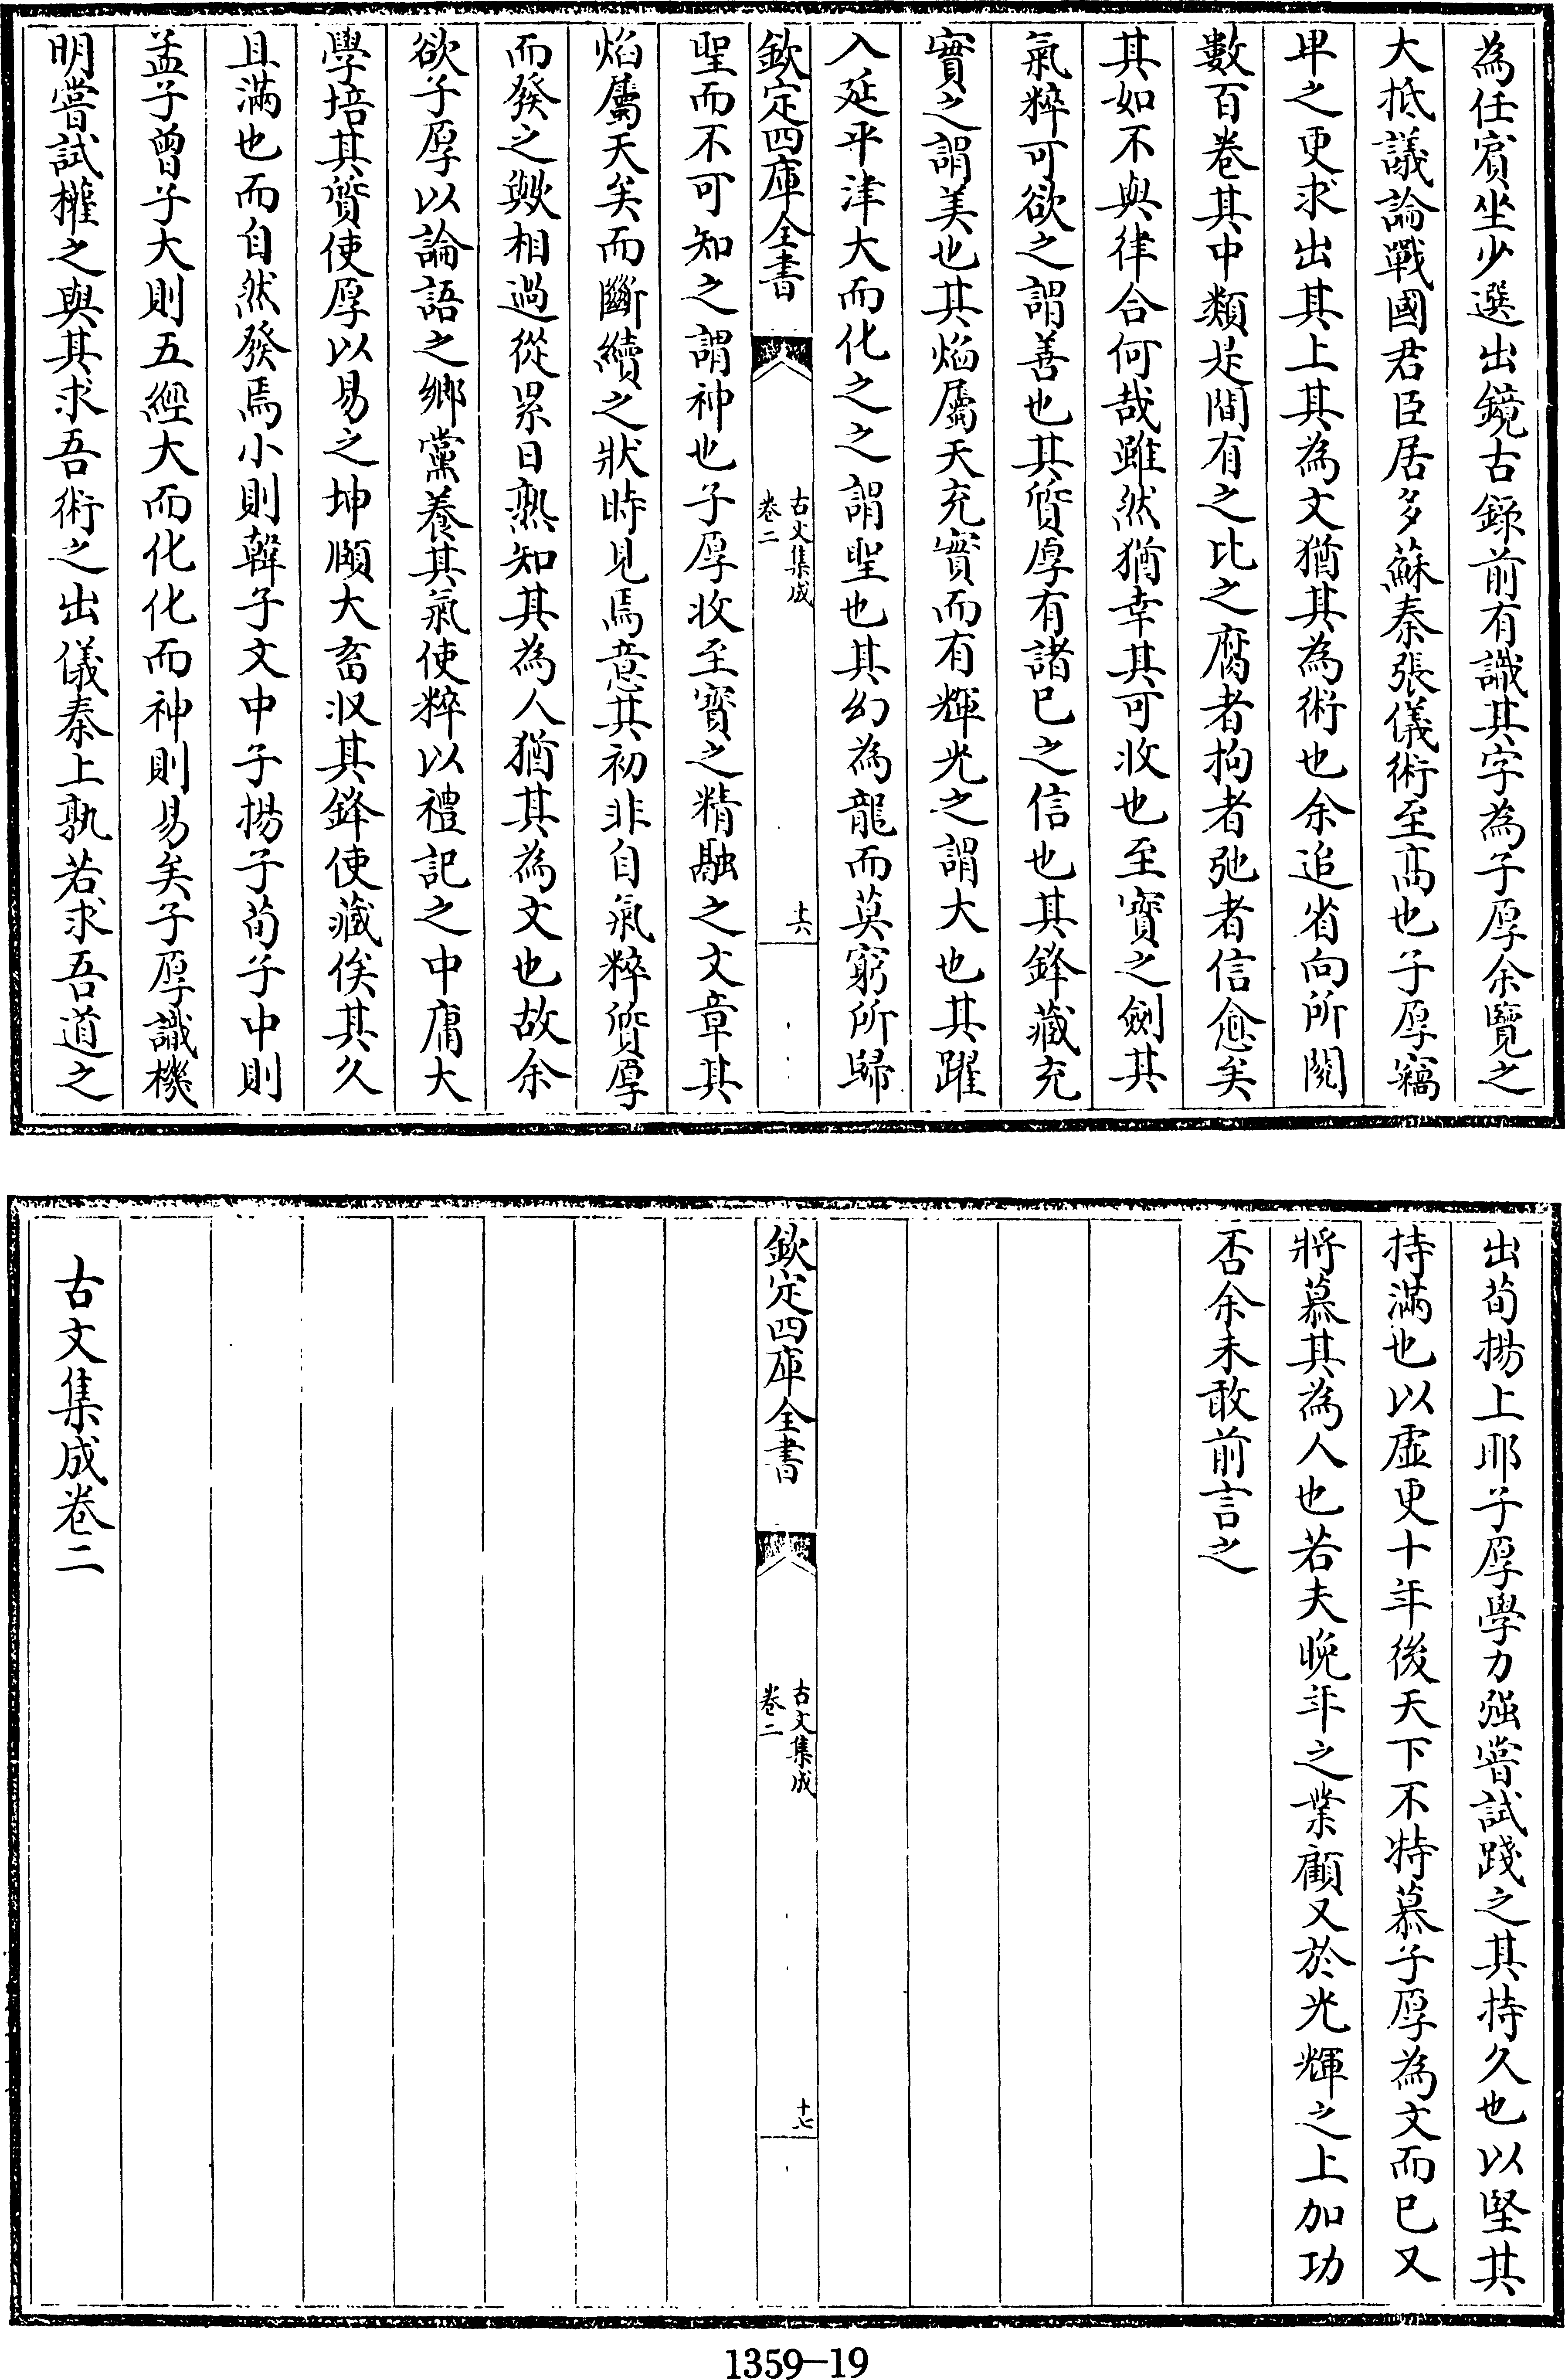 為任賓坐少選出鏡古錄前有識其字為子厚余覽之
大抵議論戰國君臣居多蘇秦張儀術至髙也子厚竊
卑之更求出其上其為文猶其為術也余追省向所閱
數百卷其中類是間有之比之腐者拘者弛者信愈矣
其如不與律合何哉雖然猶幸其可收也至寳之劍其
氣粹可欲之謂善也其質厚有諸已之信也其鋒藏充
實之謂美也其焰屬天充實而有輝光之謂大也其躍
入延平津大而化之之謂聖也其幻為龍而莫窮所歸
欽定四庫全書
古文集成
卷二
十六
聖而不可知之謂神也子厚收至寳之精融之文章其
焰屬天矣而斷續之狀時見焉意其初非自氣粹質厚
而發之歟相過從累日熟知其為人猶其為文也故余
欲子厚以論語之鄉黨養其氣使粹以禮記之中庸大
學培其質使厚以易之坤順大畜収其鋒使藏俟其久
且滿也而自然發焉小則韓子文中子揚子荀子中則
孟子曾子大則五經大而化化而神則易矣子厚識機
明嘗試權之與其求吾術之出儀秦上孰若求吾道之
出荀揚上耶子厚學力强嘗試踐之其持久也以堅其
持滿也以虛更十年後天下不特慕子厚為文而已又
將慕其為人也若夫晩年之業顧又於光輝之上加功
否余未敢前言之
欽定四庫全書
古文集成
卷二
十七
古文集成卷二
1359-19